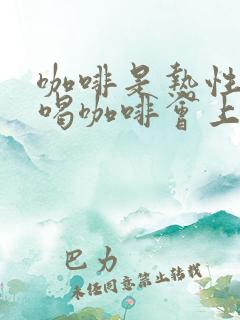 咖啡是熱性
喝咖啡會上
巴力
未經同意禁止轉載